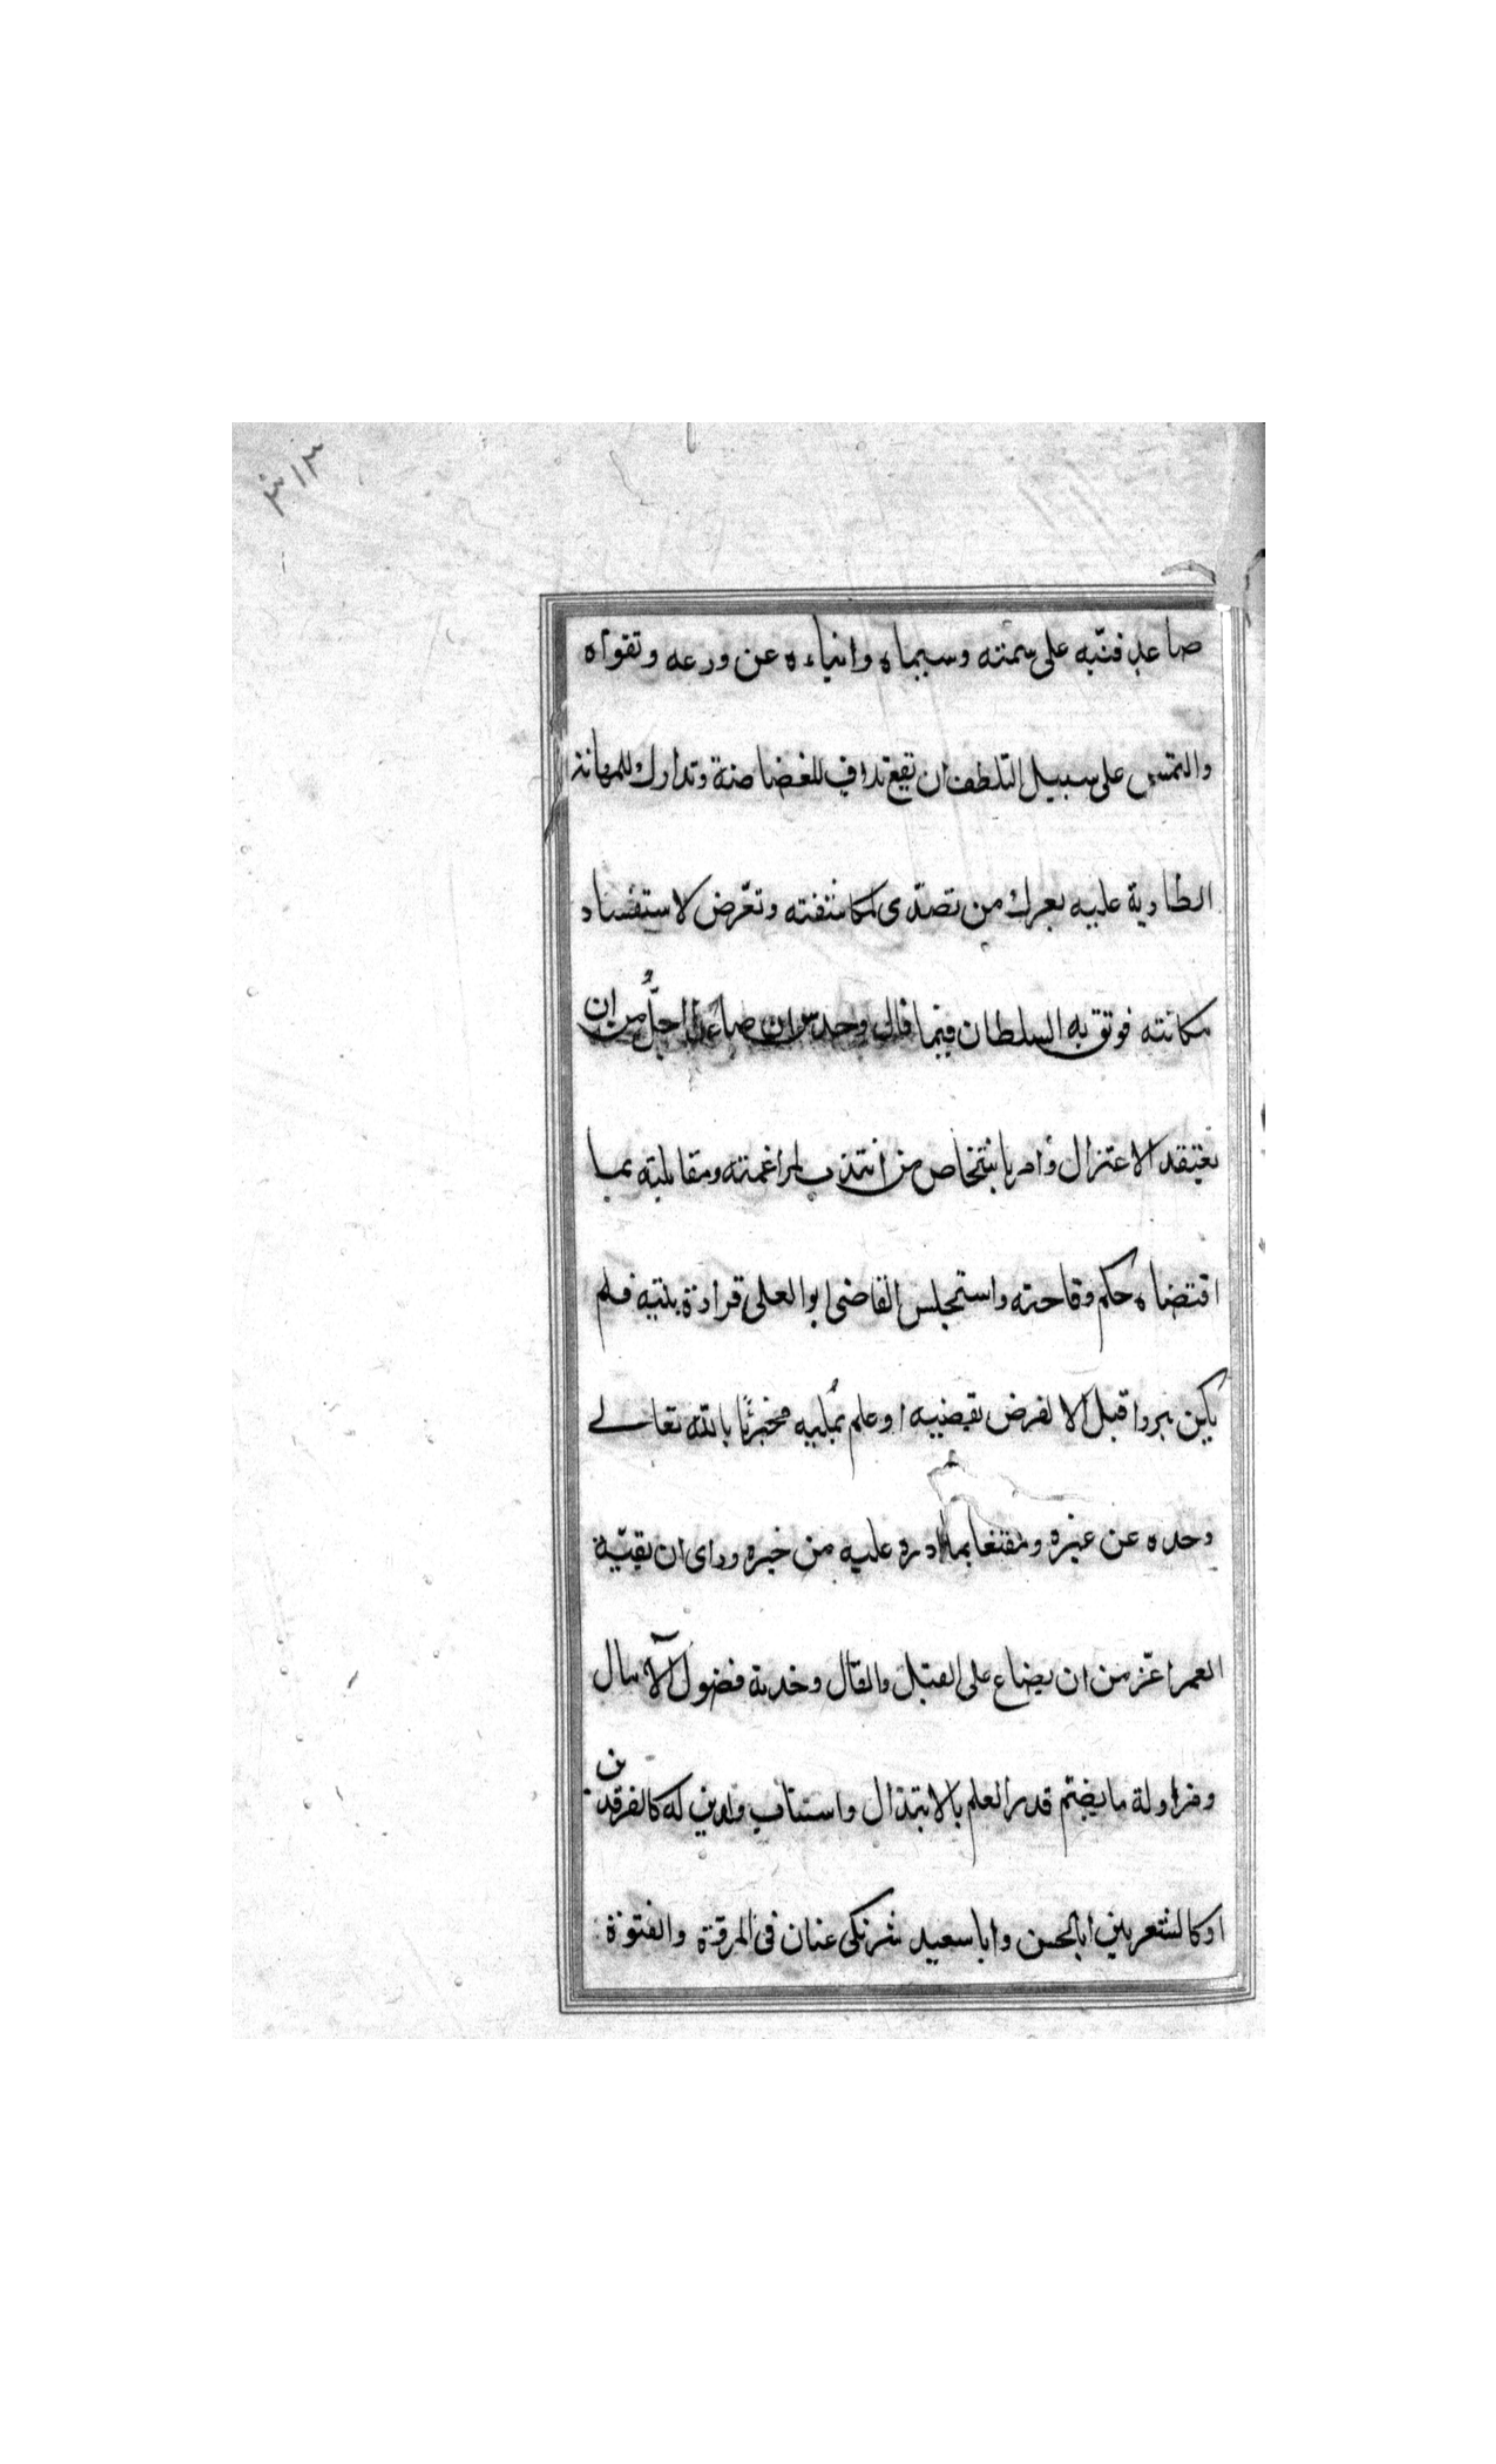 ٣١٣
صاعد فنبّه على سمته وسيماه وانباءه عن ورعه وتقواه
والتمس على سبيل التلطف ان تقع تداف للغضاضة وتدارك للمهانة
الطارية عليه بعرك من تصدّى لمكاشفته وتعرّض لاستفساد
مكانته فوثق به السلطان فيما قال وحدس ان صاعدا اجلُّ من ان
يعتقد الاعتزال وامر باشخاص من انتدب لمراغمته ومقابلته بما
اقتضاه حكم وقاحته واستجلس القاضى ابو العلى قرارة بيته فلم
يكن يبرز قبل الا لفرض يقضيه او علم يُمليه مجتزئا بالله تعالى
وحده عن غيره ومقتنعا بما ادره عليه من خيره وراى ان بقيّة
العمر اعزّ من ان يضاع على القيل والقال وخدمة فضول الآمال
ومزاولة ما يضيم قدر العلم بالابتذال واستناب ولدين له كالفرقدين
او كالشعريين ابا الحسن وابا سعيد شريكى عنان فى المروّة والفتوة